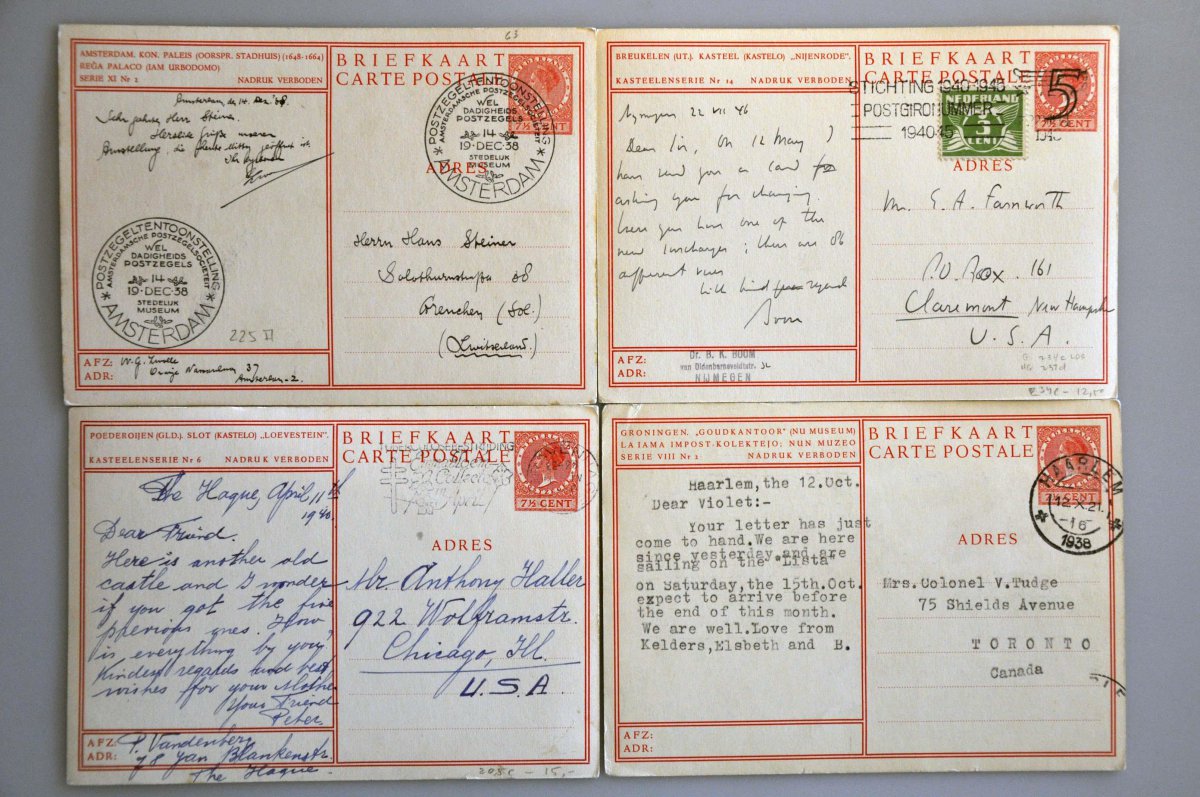 63
AMSTERDAM. KON. PALEIS (OORSPR. STADHUIS) (1648-1664)
REĜA PALACO (IAM URBODOMO)
SERIE XI Nr 2 NADRUK VERBODEN
BRIEFKAART
CARTE POSTALE
7½ CENT
POSTZEGELTENTOONSTELLING
AMSTERDAMSCHE POSTZEGELSOCIËTEIT
WEL
DADIGHEIDS
POSTZEGELS
14
19·DEC·38
STEDELIJK
MUSEUM
AMSTERDAM
Amsterdam, den 14. Dez '38
Sehr geehrter Herr Steiner.
Herzliche Grüße unserer
Ausstellung, die
ADRES
Herrn Hans Steiner
Solothurnstraße 38
Grenchen (Sol.)
(Switzerland.)
POSTZEGELTENTOONSTELLING
AMSTERDAMSCHE POSTZEGELSOCIËTEIT
WEL
DADIGHEIDS
POSTZEGELS
14
19·DEC·38
STEDELIJK
MUSEUM
AMSTERDAM
225 II
AFZ: W.G.
ADR: Oranje Nassaulaan 37
Amsterdam-Z.
BREUKELEN (UT.) KASTEEL (KASTELO) „NIJENRODE".
KASTEELENSERIE Nr 14 NADRUK VERBODEN
BRIEFKAART
CARTE POSTALE
STICHTING 1940-1945
POSTGIRONUMMER
194045
NEDERLAND
CENT
5
7½ CENT
Nymegen 22 VII 46
Dear Sir, On 12 May I
have send you a card
asking you for changing.
have one of the
new ; there are 86
different views
With kind regards
Boom
ADRES
Mr. E. A. Farnworth
P.O. Box. 161
Claremont New Hampshire
U.S.A.
AFZ:
ADR:
Dr. B. K. BOOM
van Oldenbarneveldtstr. 32
NIJMEGEN
12,50
POEDEROIJEN (GLD.) SLOT (KASTELO) „LOEVESTEIN".
KASTEELENSERIE Nr 6 NADRUK VERBODEN
BRIEFKAART
CARTE POSTALE
7½ CENT
The Hague, April 11th
1940.
Dear Friend.
Here is another old
castle and I wonder
if you got the five
previous ones. How
is everything by you,
Kindest regards and best
wishes for your Mother
Your Friend
Peter.
ADRES
Mr. Anthony Haller
922 Wolframstr.
Chicago, Ill.
U.S.A.
AFZ: P. Vandenberg
ADR: 78 Jan Blankenstr.
The Hague.
15,-
GRONINGEN. „GOUDKANTOOR" (NU MUSEUM)
LA IAMA IMPOST-KOLEKTEJO; NUN MUZEO
SERIE VIII Nr 2 NADRUK VERBODEN
BRIEFKAART
CARTE POSTALE
7½ CENT
HAARLEM
12.X.21.
-16
1938
Haarlem,the 12.Oct.
Dear Violet:-
Your letter has just
come to hand.We are here
since yesterday and are
sailing on the "Lista"
on Saturday,the 15th.Oct.
expect to arrive before
the end of this month.
We are well.Love from
Kelders,Elsbeth and B.
ADRES
Mrs.Colonel V.Tudge
75 Shields Avenue
TORONTO
Canada
AFZ:
ADR: